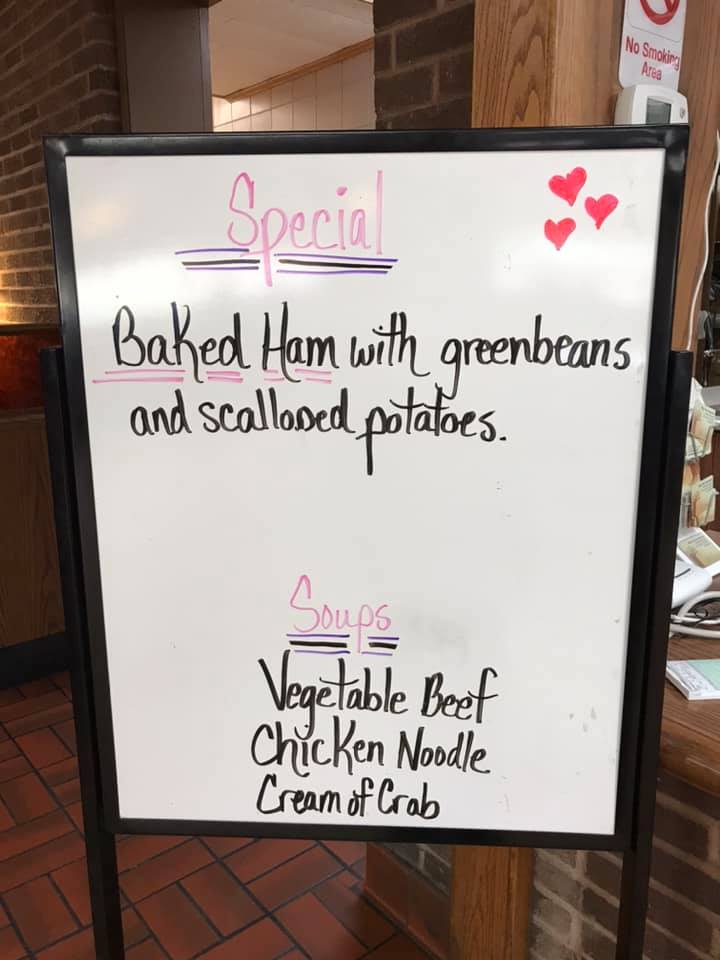 No Smoking
Area
Special
Baked Ham with greenbeans
and scalloped potatoes.
Soups
Vegetable Beef
Chicken Noodle
Cream of Crab